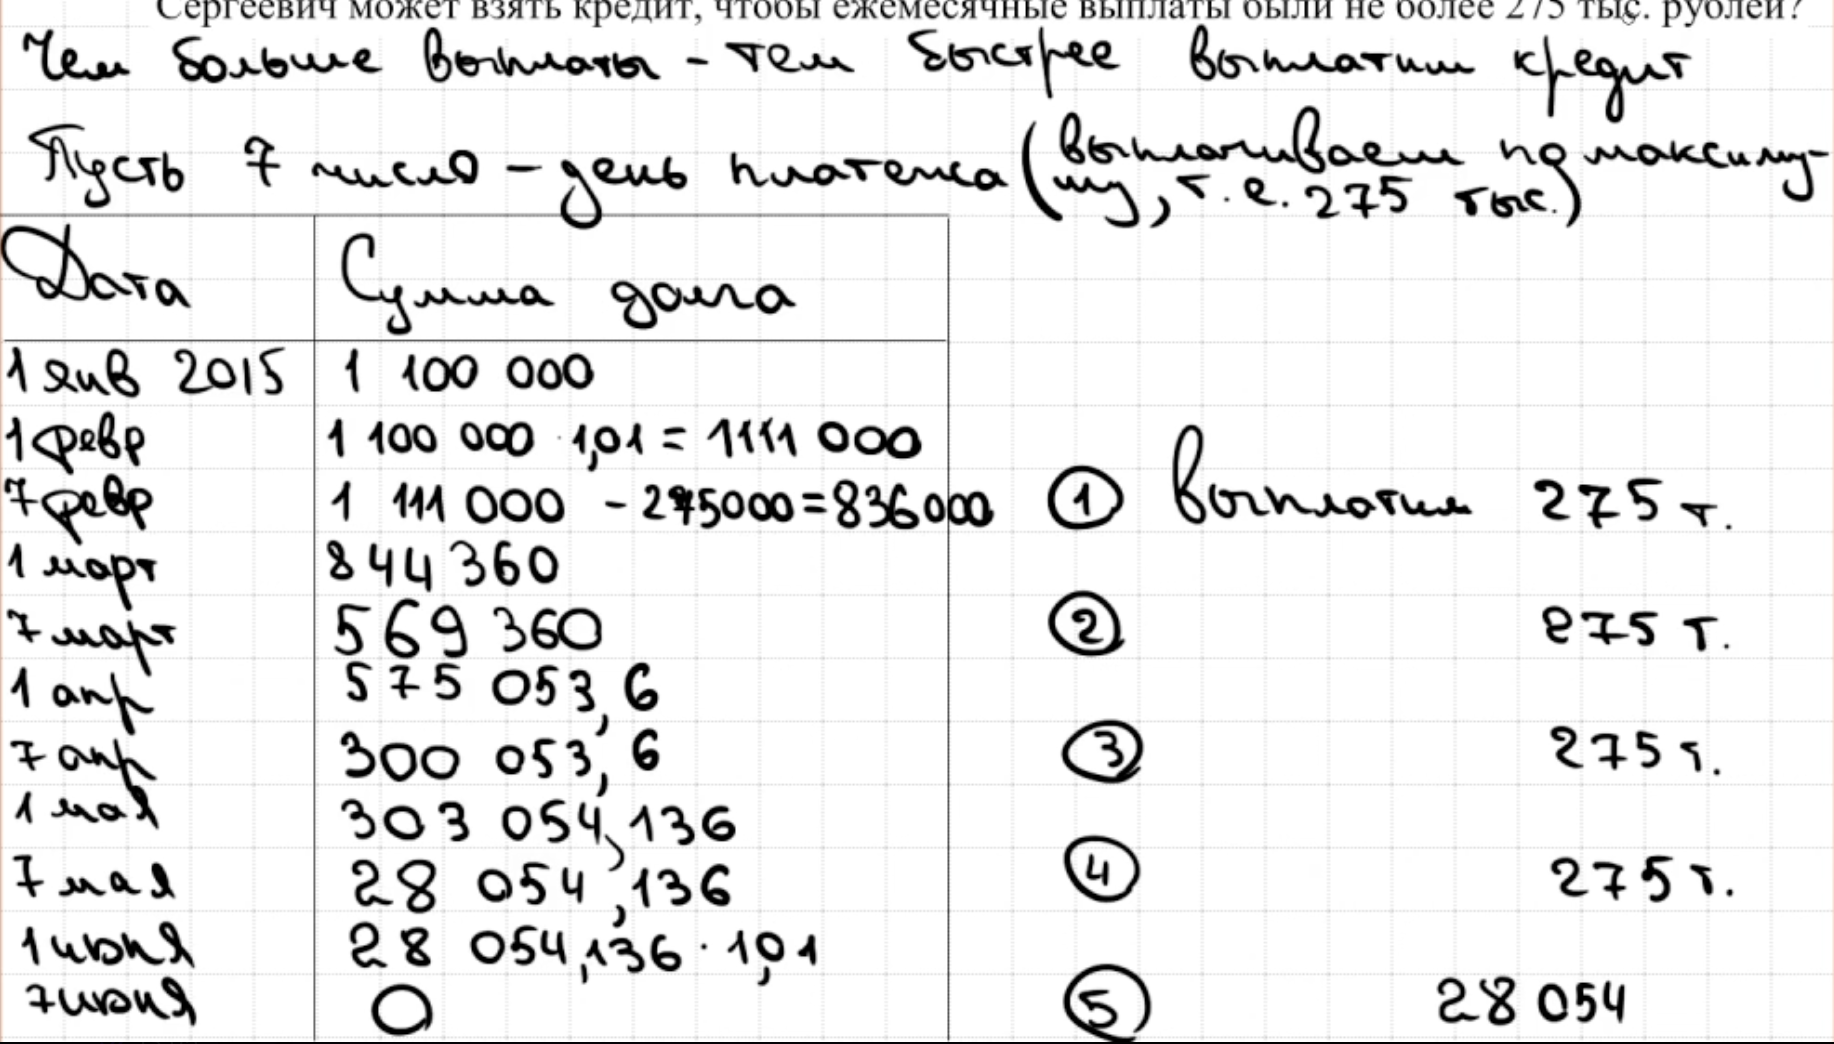 Сергеевич может взять кредит, чтобы ежемесячные выплаты были не более 275 тыс. рублей?
Чем больше выплаты - тем быстрее выплатим кредит
Пусть 7 число - день платежа (выплачиваем по максиму-
му, т.е. 275 тыс.)
Дата Сумма долга
1 янв 2015 1 100 000
1 февр 1 100 000 · 1,01 = 1111 000
7 февр 1 111 000 - 275000 = 836000 ① Выплатим 275 т.
1 март 844 360
7 март 569 360 ② 275 т.
1 апр 575 053,6
7 апр 300 053,6 ③ 275 т.
1 мая 303 054,136
7 мая 28 054,136 ④ 275 т.
1 июня 28 054,136 · 1,01
7 июня 0 ⑤ 28 054